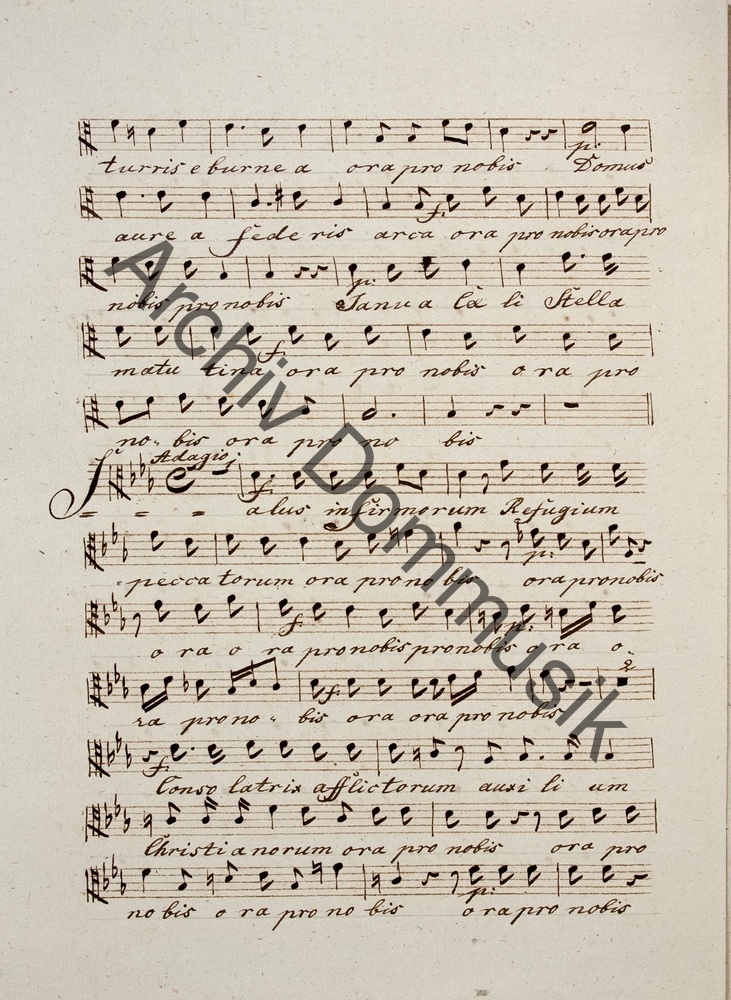 turris eburnea ora pro nobis Domus
p:
aurea federis arca ora pro nobis ora pro
f.
nobis pro nobis Janua Cæli Stella
p:
matutina ora pro nobis ora pro
f.
nobis ora pro no bis
Adagio
Salus infirmorum Refugium
f.
peccatorum ora pro nobis ora pro nobis
p:
ora ora pro nobis pro nobis ora o
f. p:
ra pro no- bis ora ora pro nobis
f. 2
Consolatrix afflictorum auxilium
f.
Christianorum ora pro nobis ora pro
nobis ora pro nobis ora pro nobis
p:
Archiv Dommusik